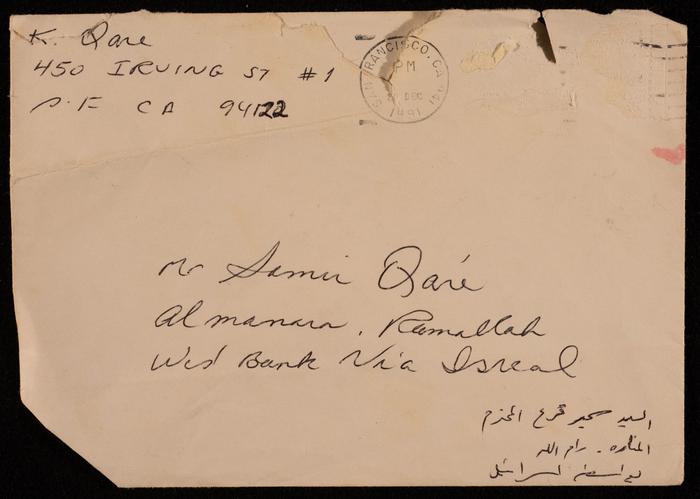 K. Qare
450 IRVING ST #1
S.F CA 94122
SAN FRANCISCO, CA 941
PM
DEC
1991
Mr Samir Qaré
Almanara, Ramallah
West Bank Via Isreal
السيد سمير قرع المحترم
المنارة - رام الله
بواسطة اسرائيل